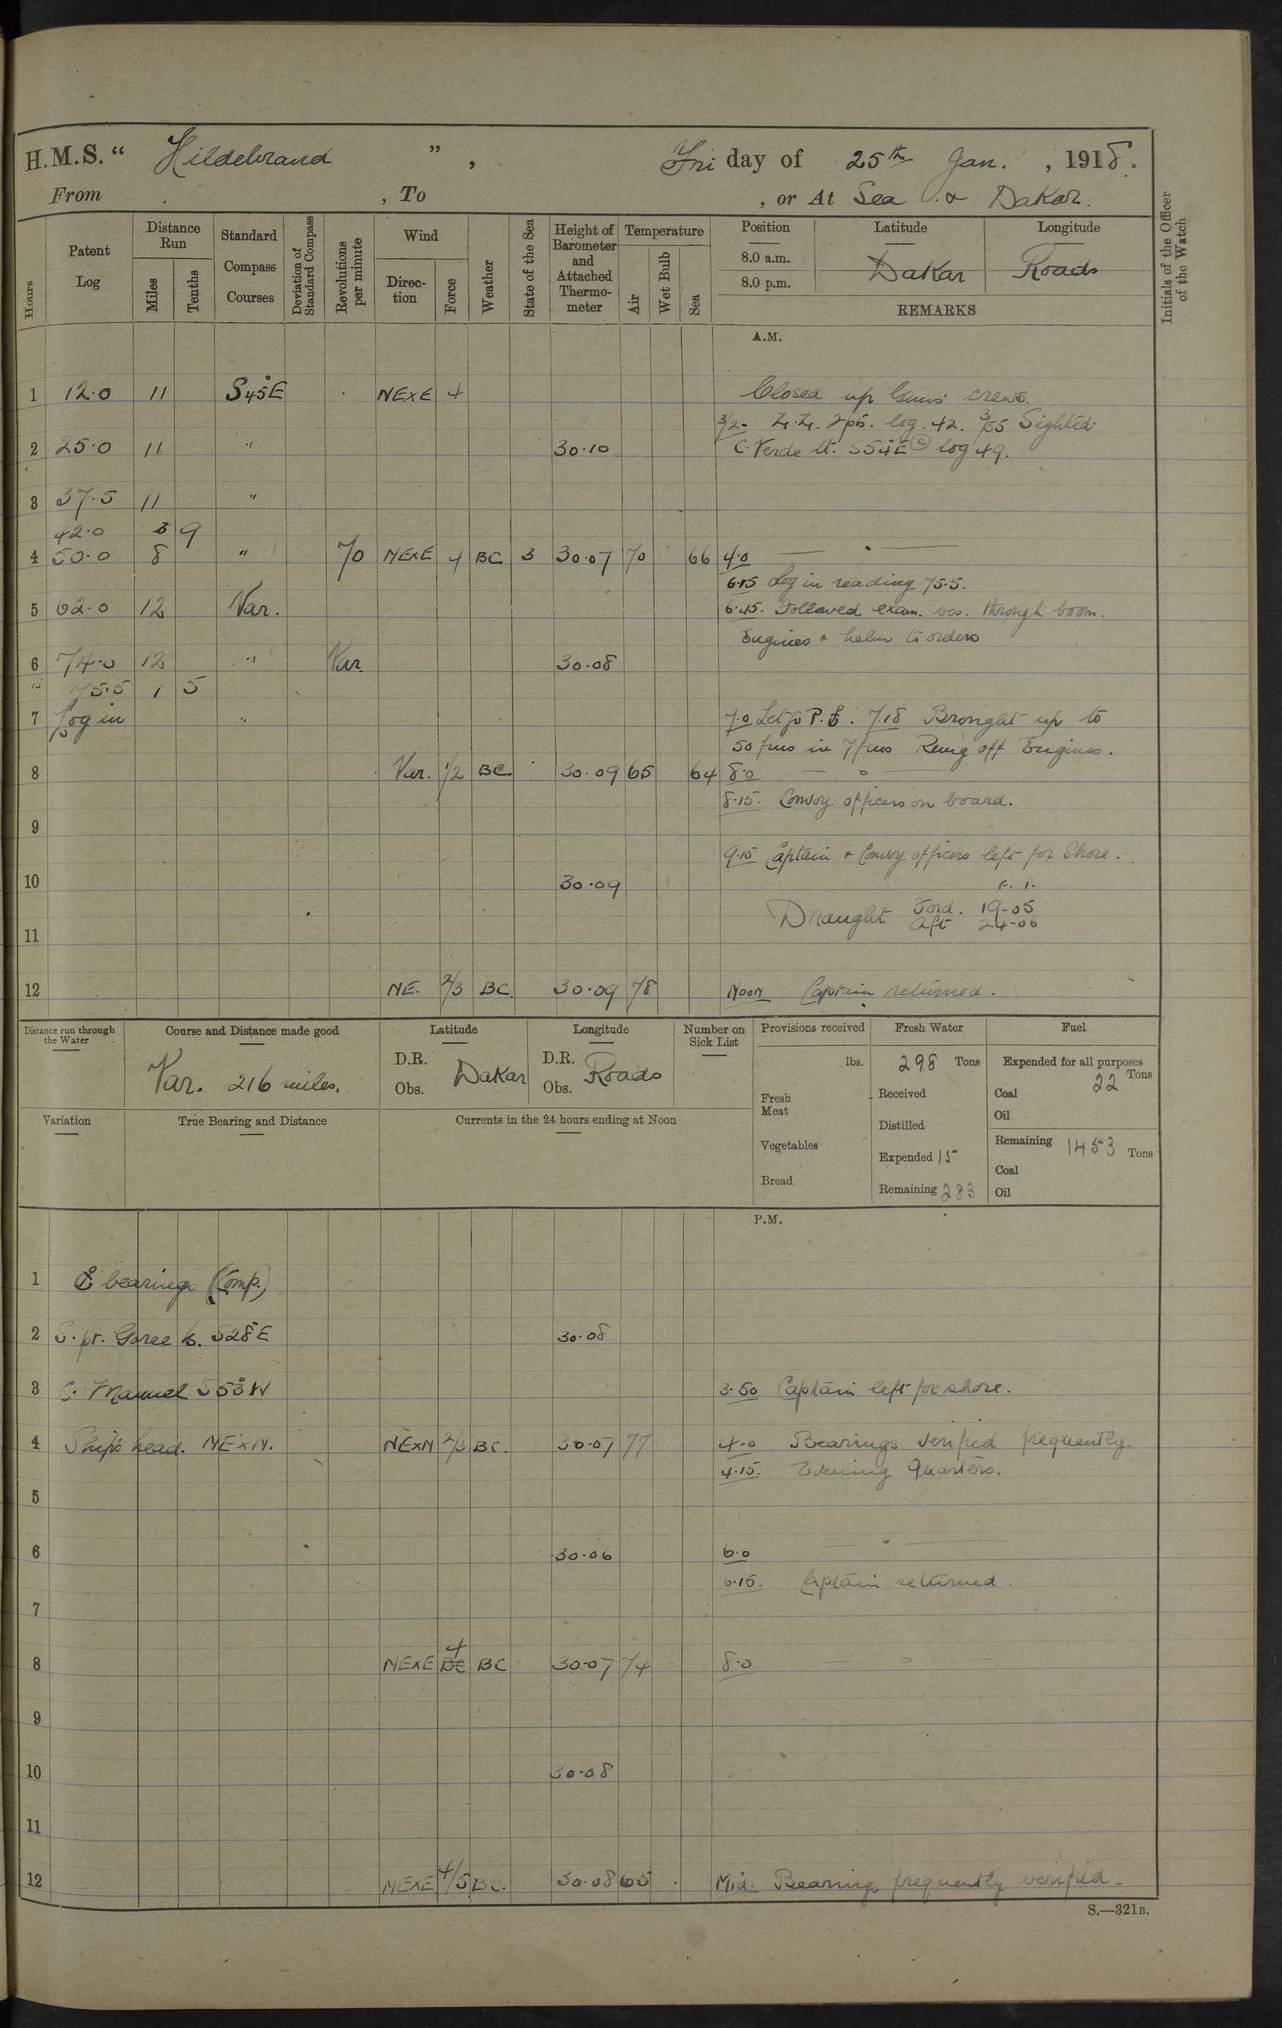 H.M.S. “ Hildebrand ” , Friday of 25th Jan. , 1918.
From , To , or At Sea & Dakar.
Hours
Patent Log
Distance Run
Miles
Tenths
Standard Compass Courses
Deviation of Standard Compass
Revolutions per minute
Wind
Direction
Force
Weather
State of the Sea
Height of Barometer and Attached Thermometer
Temperature
Air
Wet Bulb
Sea
Position Latitude Longitude
8.0 a.m.
8.0 p.m.
Dakar Roads
REMARKS
Initials of the Officer of the Watch
A.M.
1 12.0 11 S45°E NExE 4 Closed up Guns' crews.
3/20 Z.Z. 2 pts. log 42. 3/55 Sighted
2 25.0 11 " 30.10 C. Verde lt. S54°E log 49.
3 37.5 11 "
42.0 3 9
4 50.0 8 " 70 NExE 4 BC 3 30.07 70 66 4.0
6.15 Log in reading 75.5.
5 62.0 12 Var. 6.45. Followed exam. ves. through boom.
Engines & helm to orders
6 74.0 12 " Var. 30.08
15 75.5 1 5
7 Log in " 7.0 Let go P. 7.18 Brought up to
50 fms in 7 fms Ring off Engines.
8 Var. 1/2 BC 30.09 65 64 8.0
8.15. Convoy officers on board.
9
9.15 Captain & Convoy officers left for Shore.
10 30.09
Draught Ford. 19-05
Aft 24-06
11
12 NE. 2/3 BC. 30.09 78 Noon Captain returned.
Distance run through the Water
Course and Distance made good
Var. 216 miles.
Latitude
D.R.
Obs.
Dakar
Longitude
D.R.
Obs.
Roads
Number on Sick List
Provisions received
lbs.
Fresh Meat
Vegetables
Bread
Fresh Water
298 Tons
Received
Distilled
Expended 15
Remaining 283
Fuel
Expended for all purposes
22 Tons
Coal
Oil
Remaining 1453 Tons
Coal
Oil
Variation
True Bearing and Distance
Currents in the 24 hours ending at Noon
P.M.
1 bearings (Comp.)
2 S. pt. Goree Is. S28°E 30.08
3 C. Manuel S53°W 3.50 Captain left for shore.
4 Ship's head. NExN. NExN 2/3 BC. 30.07 77 4.0 Bearings verified frequently.
4.15. Evening Quarters.
5
6 30.06 6.0
6.15. Captain returned.
7
4
8 NExE BC BC 30.07 74 8.0
9
10 30.08
11
12 NExE 4/5 BC. 30.08 65 Mid. Bearings frequently verified.
S.—321B.